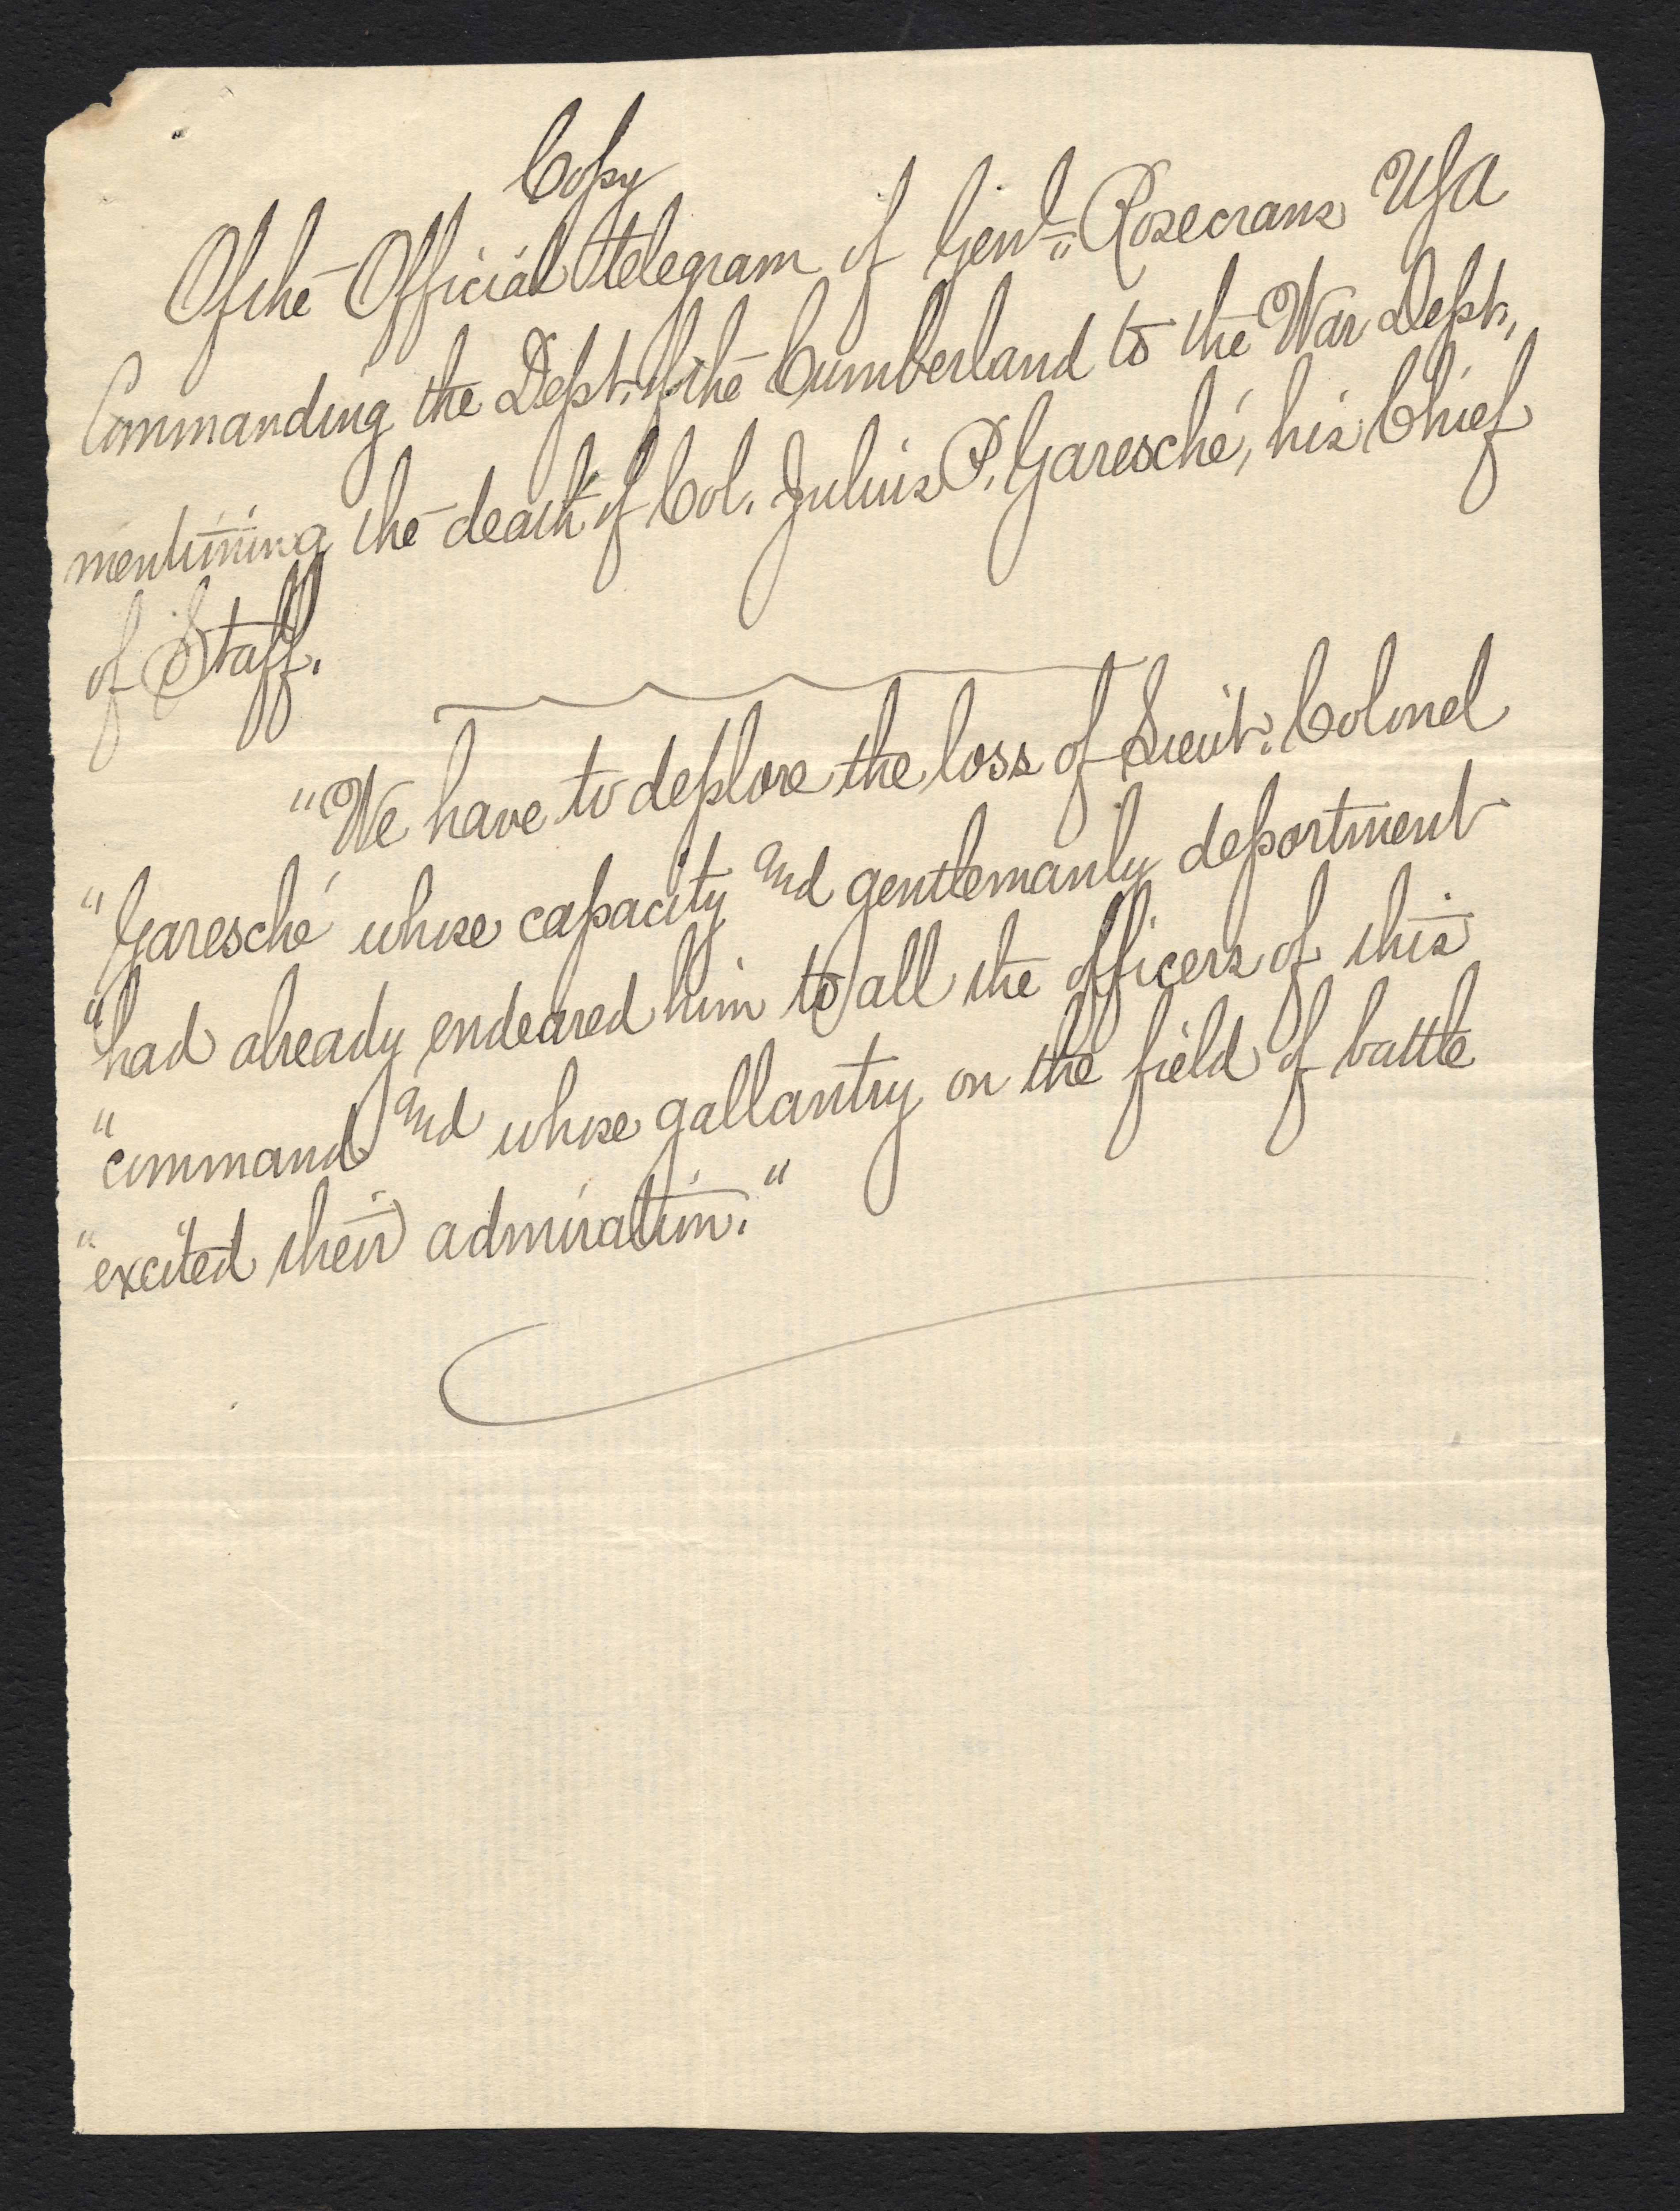 Copy
Of the Official telegram of Genl. Rosecrans USA
Commanding the Dept. of the Cumberland to the War Dept.,
mentioning the death of Col. Julius P. Garesché, his Chief
of Staff.
"We have to deplore the loss of Lieut. Colonel
"Garesché whose capacity and gentlemanly deportment
"had already endeared him to all the officers of this
"command and whose gallantry on the field of battle
"excited their admiration."